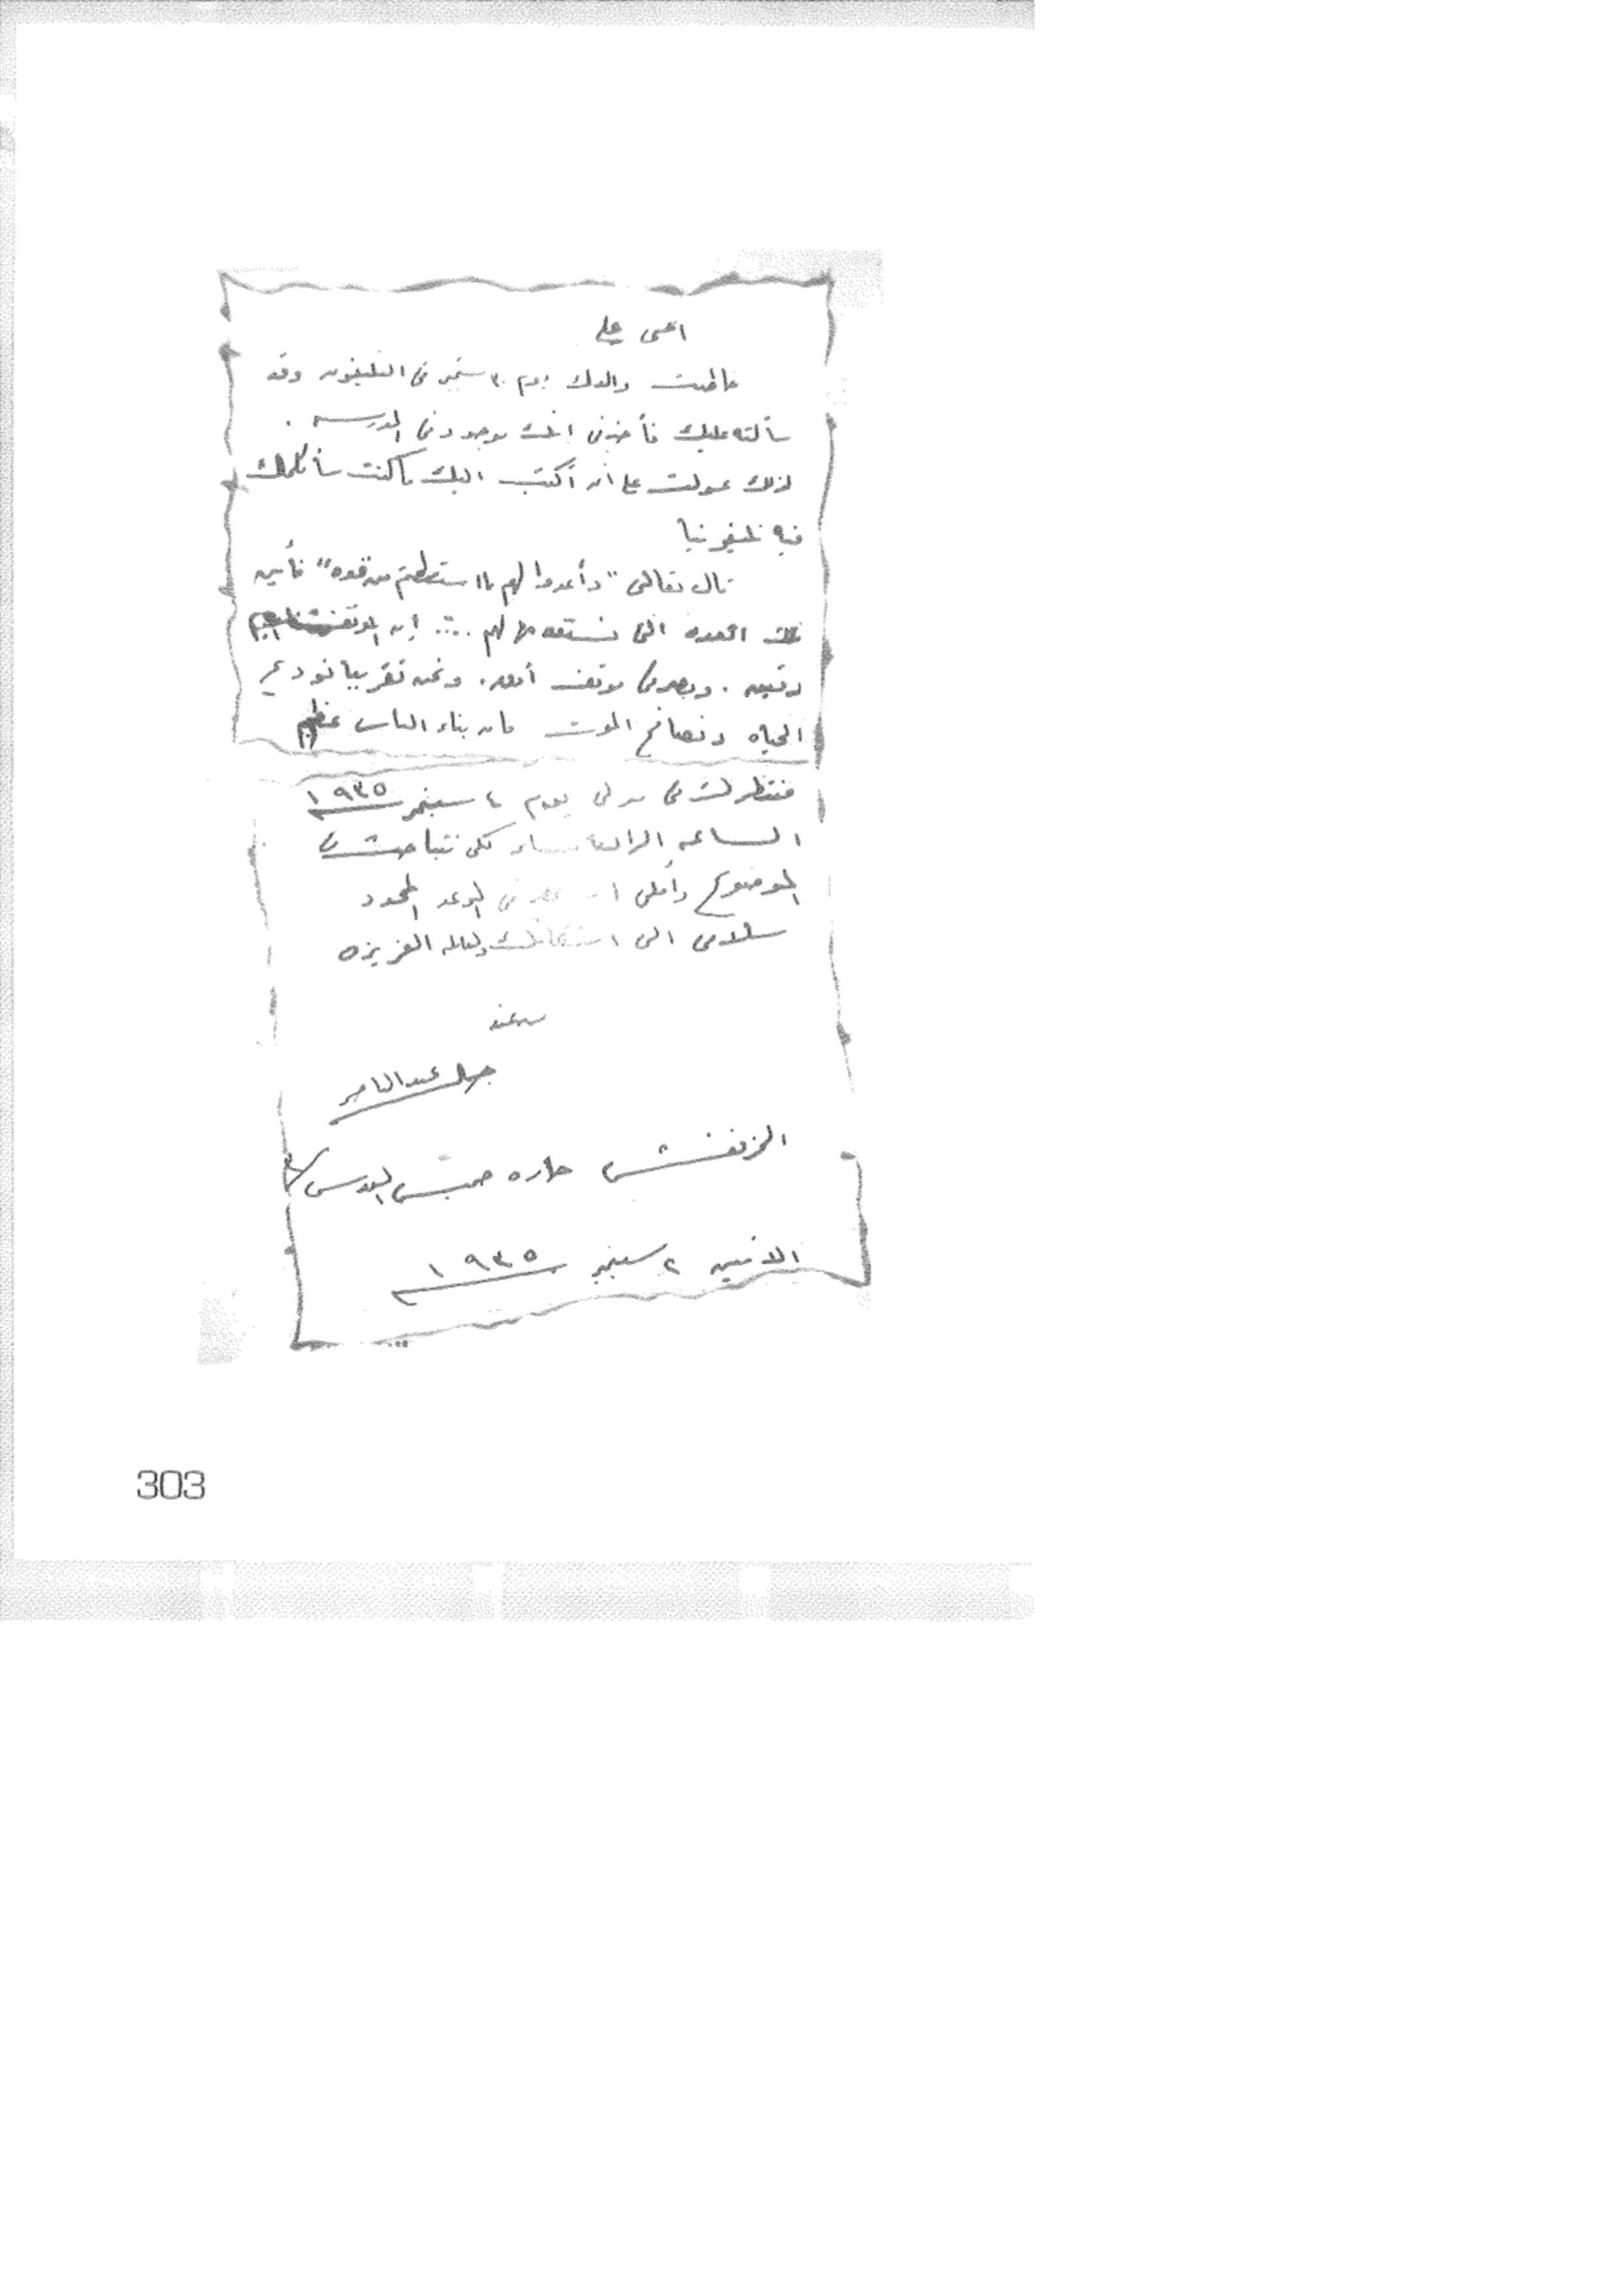 اخى على
خاطبت والدك يوم ٣٠ سبتمبر فى التليفون وقد
سألته عليك فأخبرنى انك موجود فى المدرسه .
لذلك عولت على أن أكتب اليك ما كنت سأكلمك
فيه تليفونيا
قال تعالى "وأعدوا لهم ما استطعتم من قوه" فأين
تلك القوه التى نستعد بها لهم .... إن الموقف اليوم
دقيق . ومصر فى موقف أدق . ونحن تقريبا نودع
الحياه ونصافح الموت فان بناء اليأس عظيم
منتظرك فى منزلى يوم ٤ سبتمبر ١٩٣٥
الساعه الرابعة مساء لكى نتباحث فى
الموضوع وأملى أن تحضر فى الموعد المحدد
سلامى الى اشقائك وللعائله العزيزه
جمال عبد الناصر
الخرنفش حاره خميس العدس
الاثنين ٢ سبتمبر ١٩٣٥
303